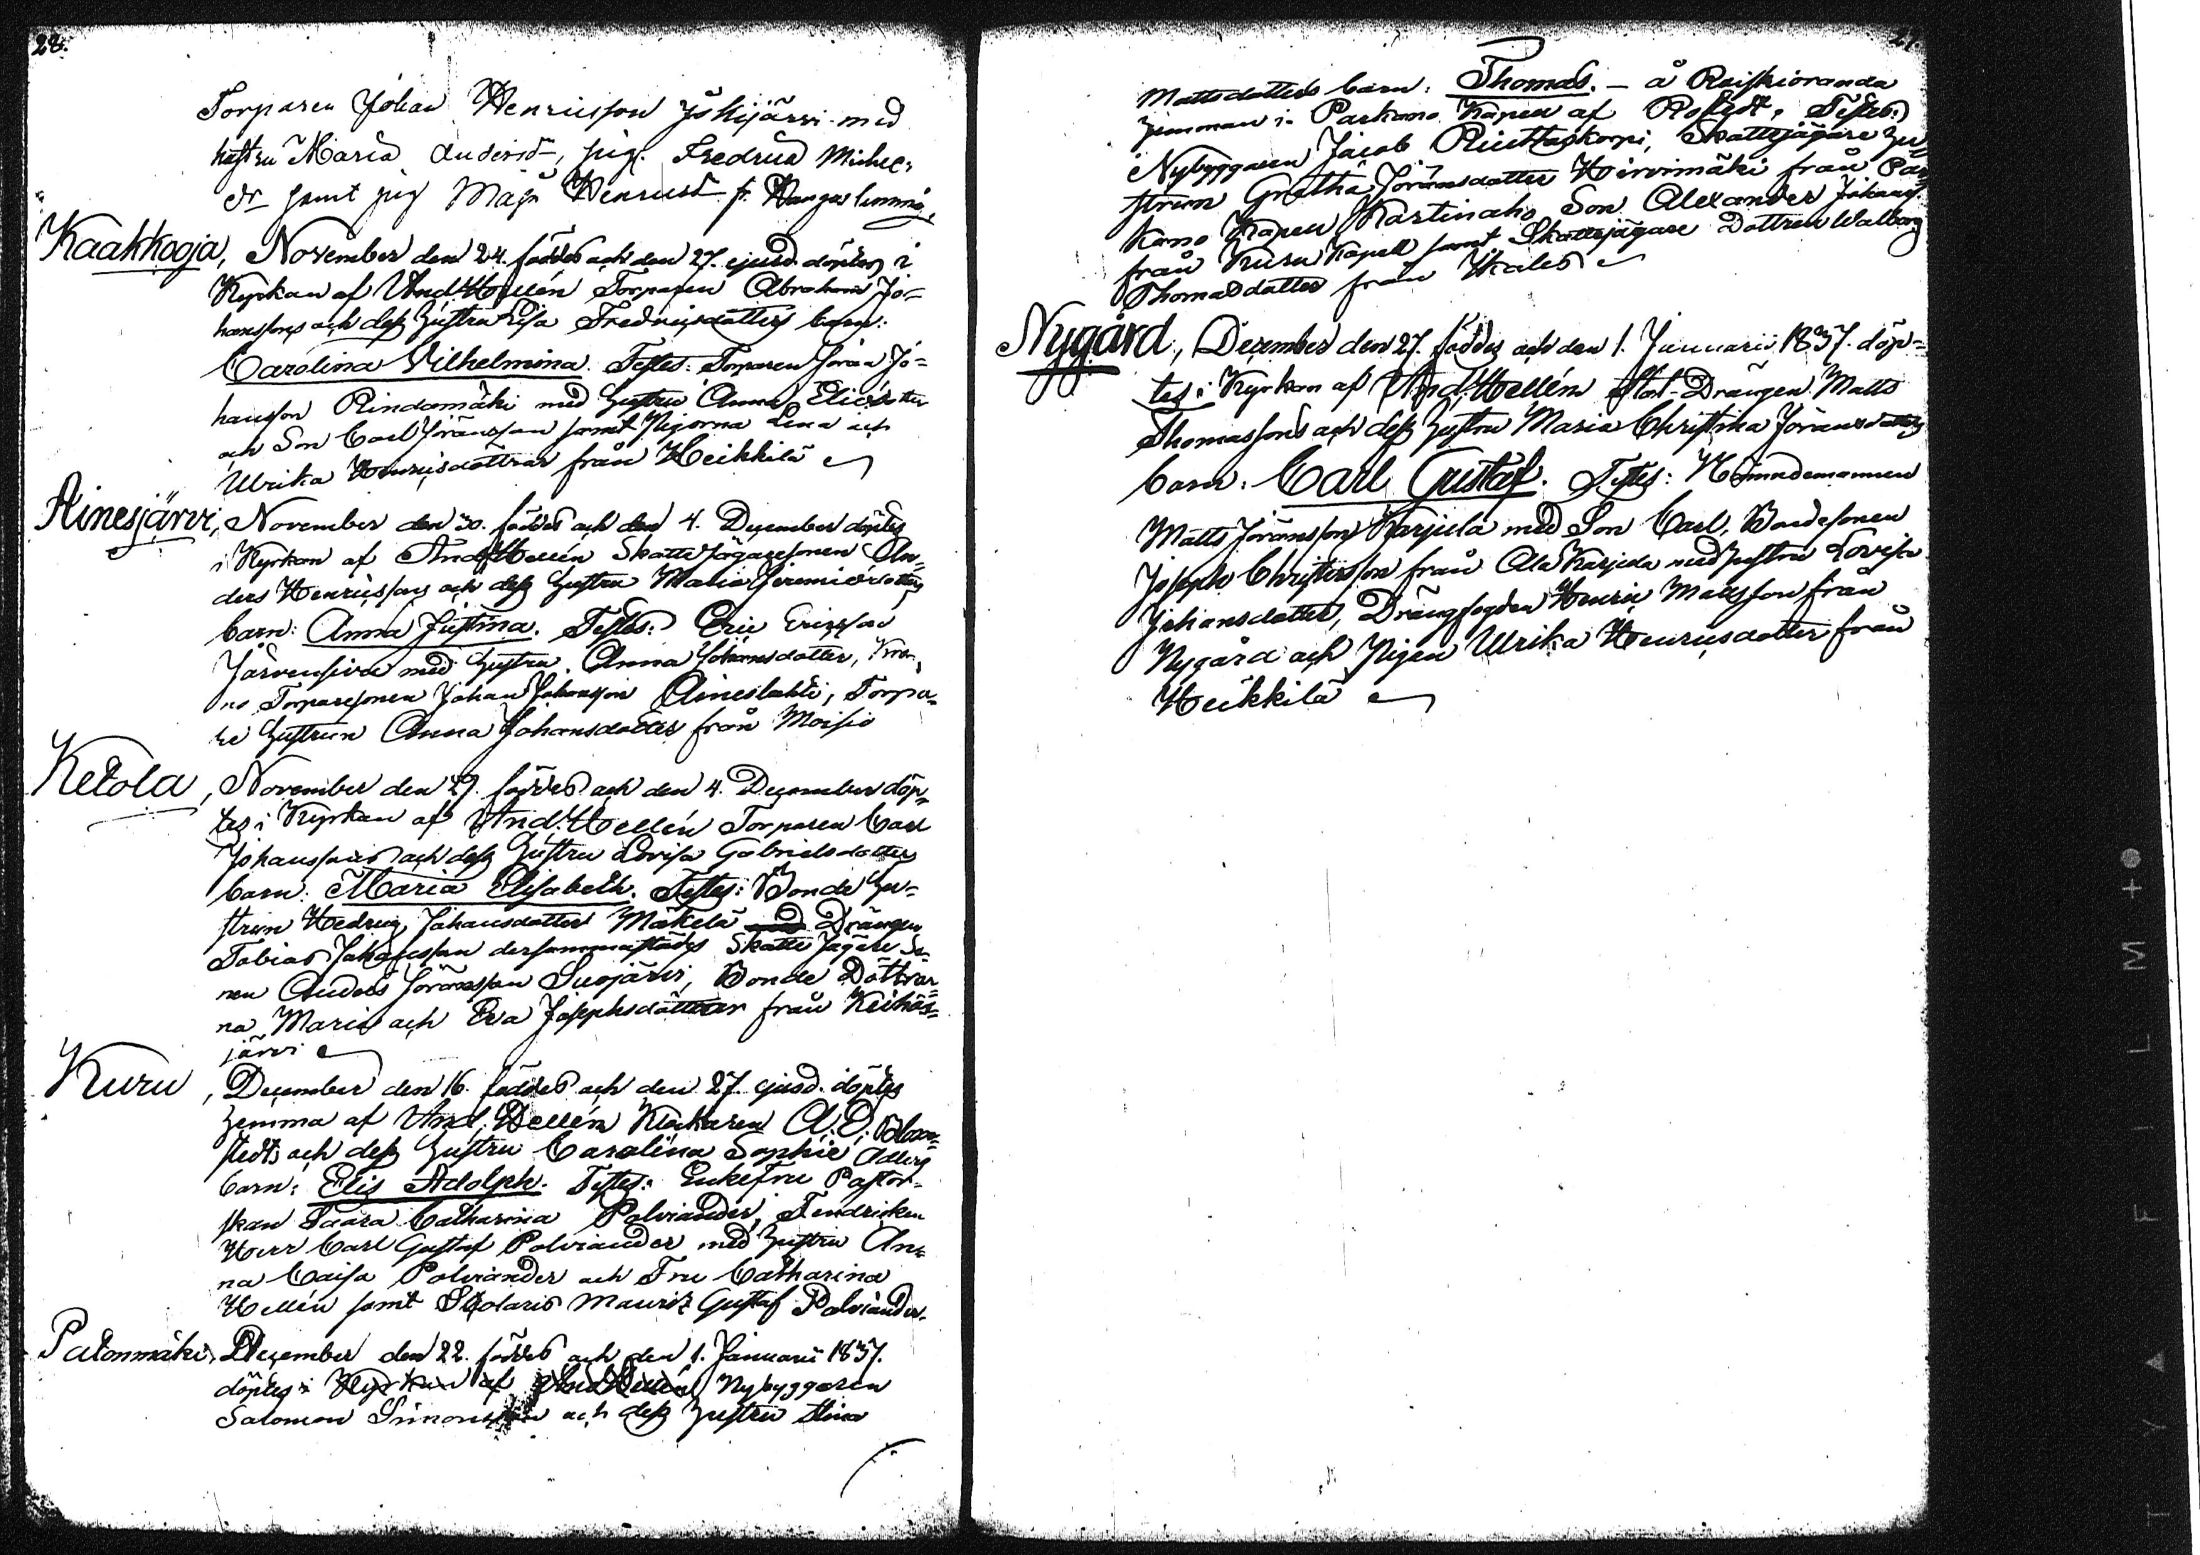 28.
Torparen Johan Henricsson Jåkijärvi med
hustru Maria Andersd-, pig. Fredrica Michels
dr samt pig Maja Henricsd fr.
Kaakkooja, November den 24. föddes och den 27. ejusd. döptes i
Kyrkan af And Hellén Torparen Abraham Jo-
hanssons och dess hustru Lisa Fredricsdotters barn:
Carolina Vilhelmina. Testes: Torparen Jöran Jo-
hansson Rindamäki med hustru Anna Ericsdotter
och Son Carl Jöransson samt Pigorna Lena och
Ulrika Henricsdöttrar från Heikkilä
Ainesjärvi, November den 30. föddes och den 4. December döptes
i Kyrkan af And Hellén Skattejägaresonen An-
ders Henricssons och dess hustru Maria Jeremiædotters
barn: Anna Justina. Testes: Eric Ericsson
Järvensivu med hustru Anna Johansdotter, Kro-
no Torparesonen Johan Johansson Aineslahti, Torpa-
re hustrun Anna Johansdotter från Moisio
Ketola, November den 29. föddes och den 4. December döp-
tes i Kyrkan af And. Hellén Torparen Carl
Johanssons och dess hustru Lovisa Gabrielsdotters
barn: Maria Elisabeth. Testes: Bonde hu-
strun Hedvig Johansdotter Mäkelä Drängen
Tobias Johansson dersammastädes Skatte Jägare So-
nen Anders Jöransson Suojärvi, Bonde Döttrar-
na Maria och Eva Josephsdöttrar från Keihäs-
järvi
Kuru, December den 16. föddes och den 27. ejusd. döptes
hemma af And. Hellén Klockaren A. D. Blom-
stedts och dess hustru Carolina Sophie
barn: Elis Adolph. Testes: Enkefru Pastor-
skan Saara Catharina Polviander, Fendricken
Herr Carl Gustaf Polviander med hustru An-
na Caisa Polviander och Fru Catharina
Hellén samt Scolaris Mauritz Gustaf Polviander.
Patonmäki, December den 22. föddes och den 1. Januarii 1837.
döptes i Kyrkan af And Hellén Nybyggaren
Salomon Simonsson och dess hustru Stina
Mattsdotters barn: Thomas. - å Raiskioranda
hemman i Parkano Kapell af Rostedt. Testes:
Nybyggaren Jacob Riuttaskorpi, Skattejägare hu-
strun Gretha Jöransdotter Hirvimäki från Par-
kano Kapell Kartinaho Son Alexander Johanss.
från Kuru Kapell samt Skattejägare Dottren Walborg
Thomasdotter från Ikalis
Nygård, December den 27. föddes och den 1. Januarii 1837. döp-
tes i Kyrkan af And. Hellén Stat-Drängen Matts
Thomassons och dess hustru Maria Christina Jöransdotters
barn: Carl Gustaf. Testes: Nämndemannen
Matts Jöransson Karjula med Son Carl, Bondesonen
Joseph Christersson från Ala Karjula med hustru Lovisa
Johansdotter, Drängfogden Henric Mattsson från
Nygård och Pigan Ulrika Henricsdotter från
Heikkilä
TYA FILM